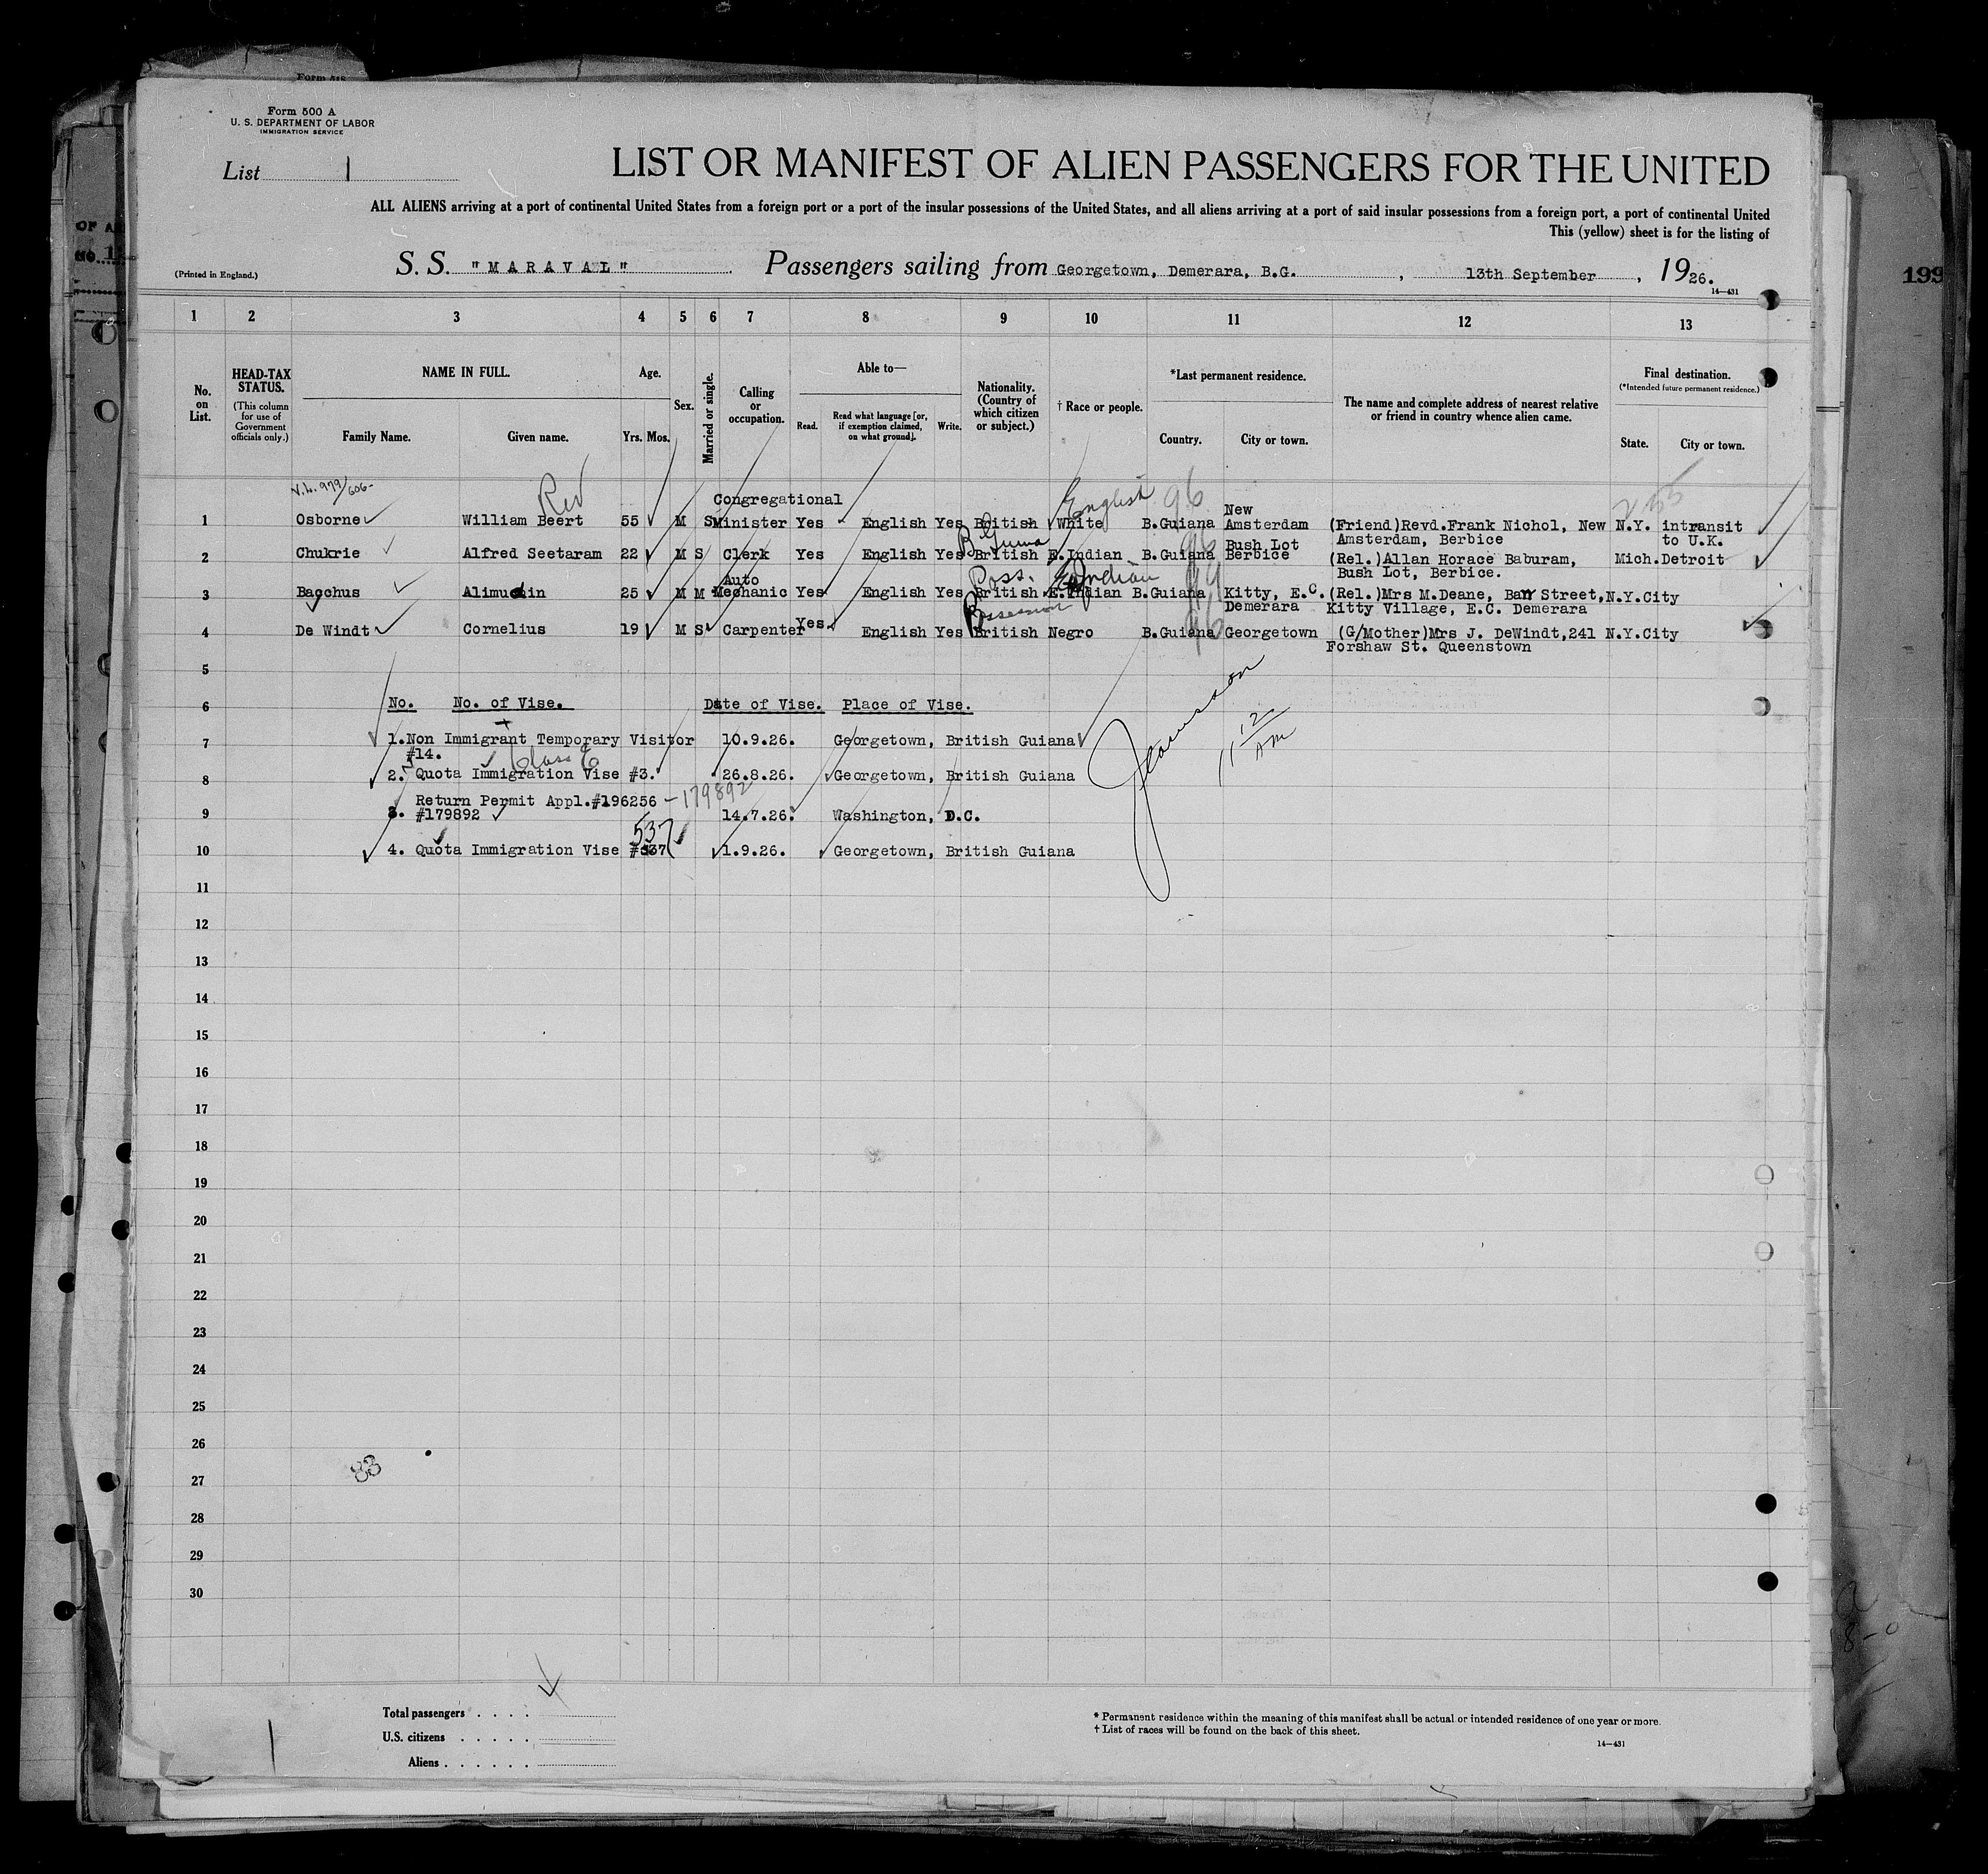 Form 500 A
U. S. DEPARTMENT OF LABOR
IMMIGRATION SERVICE
List 1
LIST OR MANIFEST OF ALIEN PASSENGERS FOR THE UNITED
ALL ALIENS arriving at a port of continental United States from a foreign port or a port of the insular possessions of the United States, and all aliens arriving at a port of said insular possessions from a foreign port, a port of continental United
This (yellow) sheet is for the listing of
(Printed in England.)
S. S. "MARAVAL" Passengers sailing from Georgetown, Demerara, B.G. , 13th September , 1926.
14—431
199
1 2 3 4 5 6 7 8 9 10 11 12 13
No. on List.
HEAD-TAX STATUS.
(This column for use of Government officials only.)
NAME IN FULL.
Family Name. Given name.
Age.
Yrs. Mos.
Sex.
Married or single.
Calling or occupation.
Able to—
Read. Read what language [or, if exemption claimed, on what ground]. Write.
Nationality. (Country of which citizen or subject.)
† Race or people.
*Last permanent residence.
Country. City or town.
The name and complete address of nearest relative or friend in country whence alien came.
Final destination.
(*Intended future permanent residence.)
State. City or town.
V.L. 979/606-
Rev
English 96
Congregational New
1 Osborne William Beert 55 M S Minister Yes English Yes British White B.Guiana Amsterdam (Friend)Revd.Frank Nichol, New N.Y. intransit
Amsterdam, Berbice to U.K.
Bush Lot
2 Chukrie Alfred Seetaram 22 M S Clerk Yes English Yes British E.Indian B.Guiana Berbice (Rel.)Allan Horace Baburam, Mich.Detroit
Bush Lot, Berbice.
Poss. Indian
Auto
3 Bacchus Alimudin 25 M M Mechanic Yes English Yes British E.Indian B.Guiana Kitty, E.C. (Rel.)Mrs M.Deane, Barr Street, N.Y.City
Demerara Kitty Village, E.C. Demerara
Possession 96
4 De Windt Cornelius 19 M S Carpenter Yes English Yes British Negro B.Guiana Georgetown (G/Mother)Mrs J. DeWindt,241 N.Y.City
Forshaw St. Queenstown
5
6 No. No. of Vise. Date of Vise. Place of Vise.
7 1.Non Immigrant Temporary Visitor 10.9.26. Georgetown, British Guiana
#14.
11 12 AM
8 2. Quota Immigration Vise #3. 26.8.26. Georgetown, British Guiana
Return Permit Appl.#196256 - 179892
9 3. #179892 14.7.26. Washington, D.C.
537
10 4. Quota Immigration Vise #537 1.9.26. Georgetown, British Guiana
11
12
13
14
15
16
17
18
19
20
21
22
23
24
25
26
83
27
28
29
30
Total passengers . . . .
U.S. citizens . . . . .
Aliens . . . . . .
* Permanent residence within the meaning of this manifest shall be actual or intended residence of one year or more.
† List of races will be found on the back of this sheet.
14—431